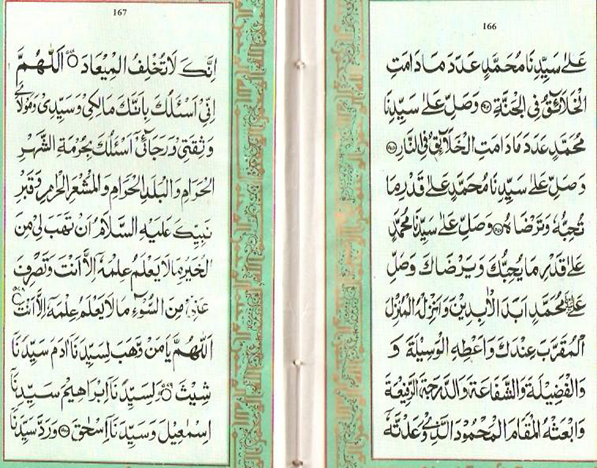 166
عَلٰى سَيِّدِنَا مُحَمَّدٍ عَدَدَ مَا دَامَتِ
الْخَلَآئِقُ فِى الْجَنَّةِ وَصَلِّ عَلٰى سَيِّدِنَا
مُحَمَّدٍ عَدَدَ مَا دَامَتِ الْخَلَآئِقُ فِى النَّارِ
وَصَلِّ عَلٰى سَيِّدِنَا مُحَمَّدٍ عَلٰى قَدْرِ مَا
تُحِبُّهٗ وَتَرْضَاهُ وَصَلِّ عَلٰى سَيِّدِنَا مُحَمَّدٍ
عَلٰى قَدْرِ مَا يُحِبُّكَ وَيَرْضَاكَ وَصَلِّ
عَلٰى مُحَمَّدٍ اَبَدَ الْاٰبِدِيْنَ وَاَنْزِلْهُ الْمُنْزَلَ
الْمُقَرَّبَ عِنْدَكَ وَاَعْطِهِ الْوَسِيْلَةَ وَ
وَالْفَضِيْلَةَ وَالشَّفَاعَةَ وَالدَّرَجَةَ الرَّفِيْعَةَ
وَابْعَثْهُ الْمَقَامَ الْمَحْمُوْدَ الَّذِىْ وَعَدْتَّهٗ
167
اِنَّكَ لَا تُخْلِفُ الْمِيْعَادَ اَللّٰهُمَّ
اِنِّىْ اَسْئَلُكَ بِاَنَّكَ مَالِكِىْ وَسَيِّدِىْ وَمَوْلَاىَ
وَثِقَتِىْ وَرَجَآئِىْ اَسْئَلُكَ بِحُرْمَةِ الشَّهْرِ
الْحَرَامِ وَالْبَلَدِ الْحَرَامِ وَالْمَشْعَرِ الْحَرَامِ وَقَبْرِ
نَبِيِّكَ عَلَيْهِ السَّلَامُ اَنْ تَهَبَ لِىْ مِنَ
الْخَيْرِ مَا لَا يَعْلَمُ عِلْمَهٗ اِلَّا اَنْتَ وَتَصْرِفَ
عَنِّىْ مِنَ السُّوْٓءِ مَا لَا يَعْلَمُ عِلْمَهٗ اِلَّا اَنْتَ
اَللّٰهُمَّ يَا مَنْ وَّهَبَ لِسَيِّدِنَا اٰدَمَ سَيِّدَنَا
شِيْثَ لِسَيِّدِنَا اِبْرَاهِيْمَ سَيِّدَنَا
اِسْمٰعِيْلَ وَسَيِّدَنَا اِسْحٰقَ وَرَدَّ سَيِّدَنَا